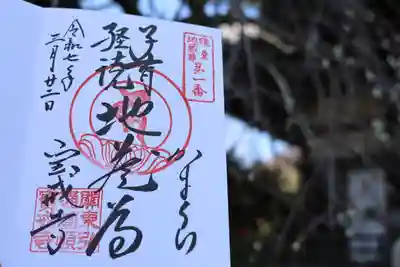 鎌倉
地蔵尊
第一番
かまくら
子育
経読
地蔵尊
宝戒寺
令和七年
三月廿二日